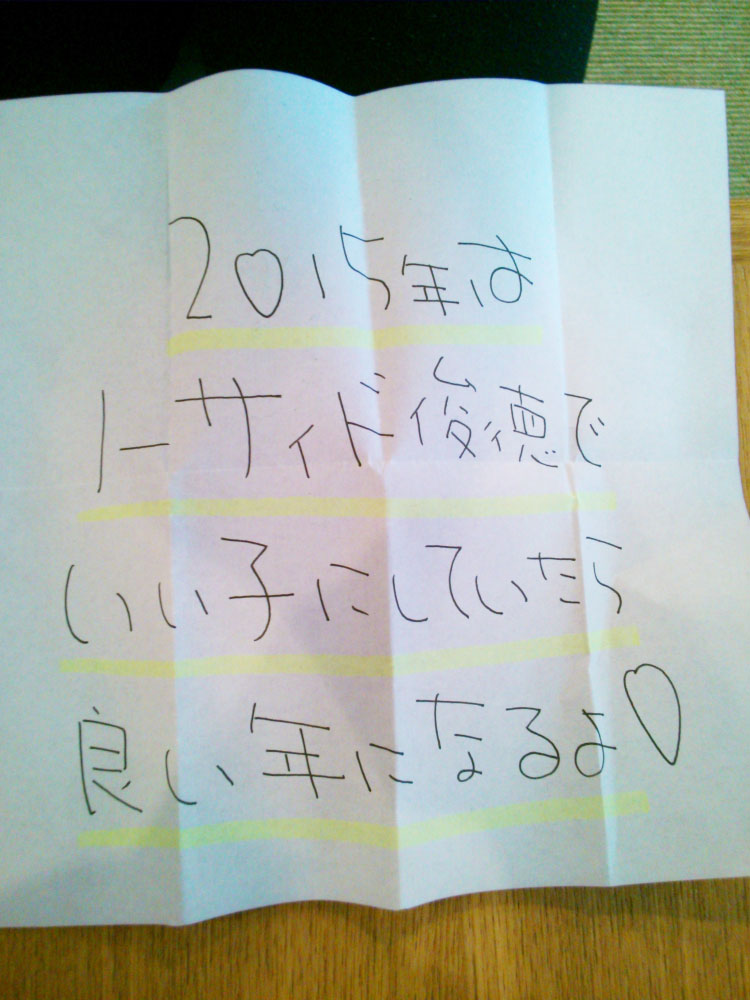 2015年は
トーサイド俊徳で
いい子にしていたら
良い年になるよ♡